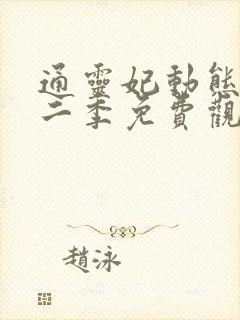 通靈妃動態
二季免費觀
趙泳